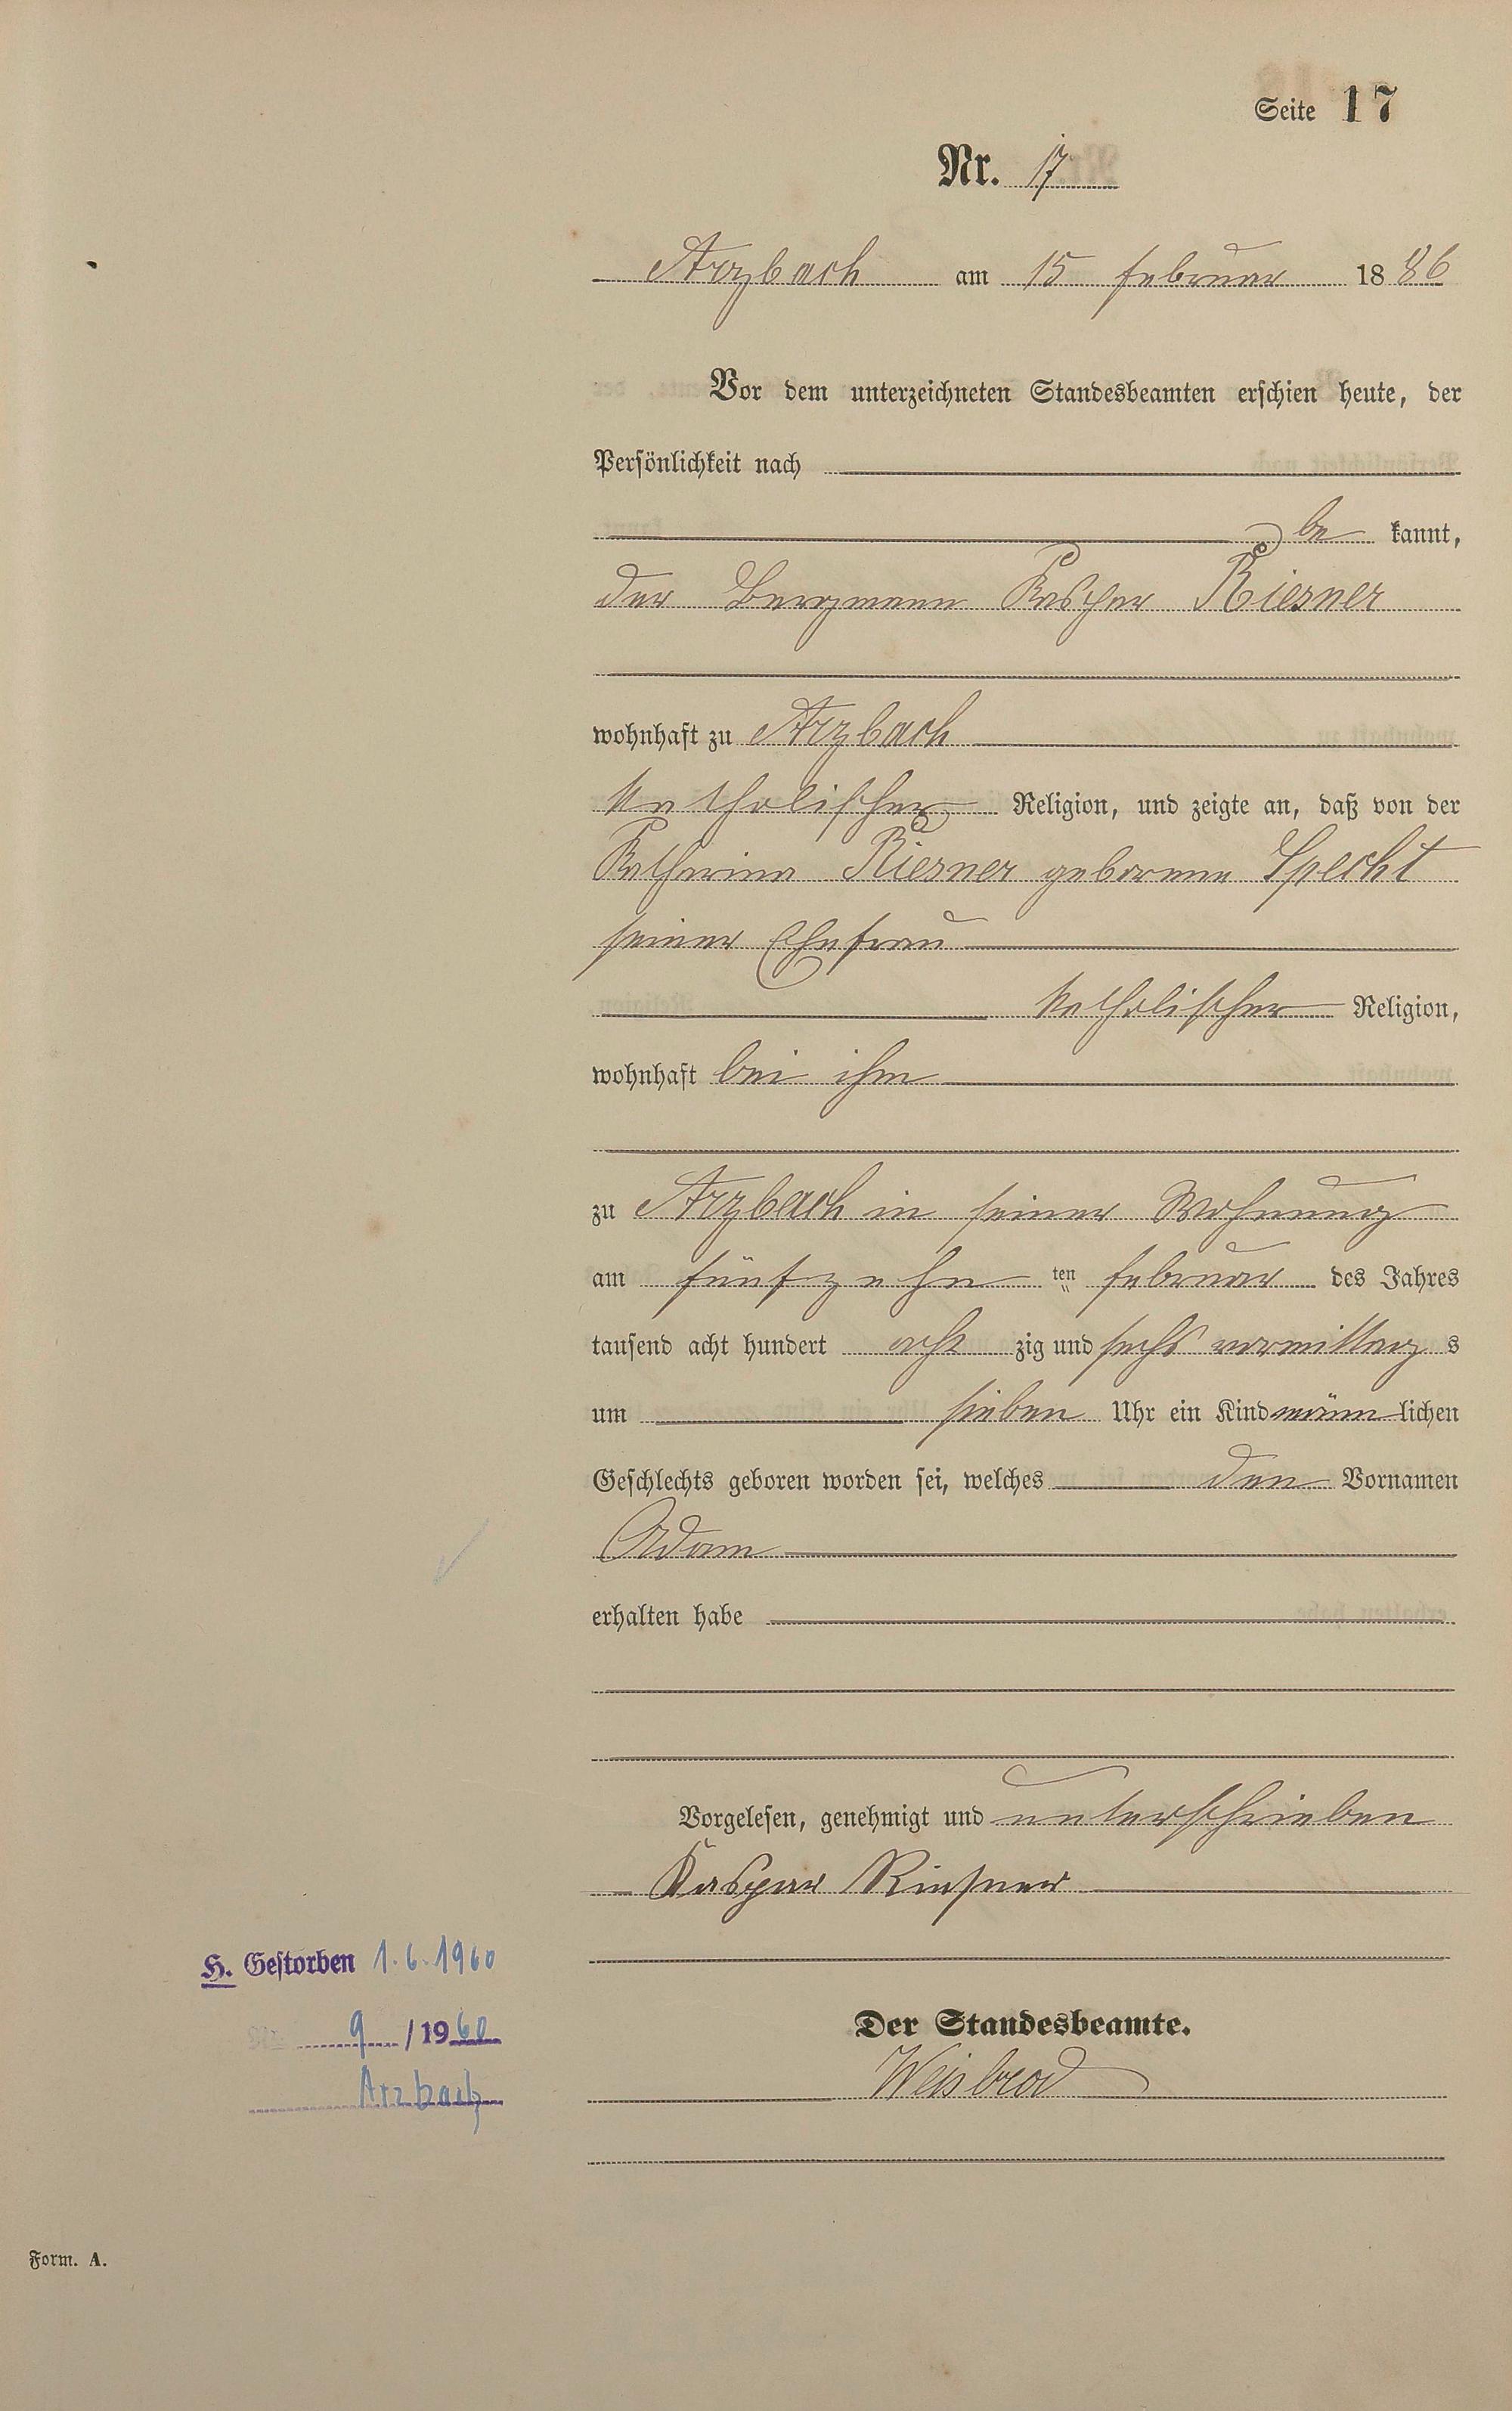 Seite 17
Nr. 17
Arzbach am 15 Februar 1886
Vor dem unterzeichneten Standesbeamten erschien heute, der
Persönlichkeit nach
be kannt,
der Bergmann Kaspar Riesner
wohnhaft zu Arzbach
katholischer Religion, und zeigte an, daß von der
Katharina Riesner geborenen Specht
seiner Ehefrau
katholischer Religion,
wohnhaft bei ihm
zu Arzbach in seiner Wohnung
am fünfzehn ten Februar des Jahres
tausend acht hundert acht zig und sechs vormittag s
um sieben Uhr ein Kind männ lichen
Geschlechts geboren worden sei, welches den Vornamen
Adam
erhalten habe
Vorgelesen, genehmigt und unterschrieben
Kaspar Riesner
H. Gestorben 1.6.1960
9 / 1960
Arzbach
Der Standesbeamte.
Weisbrod
Form. A.